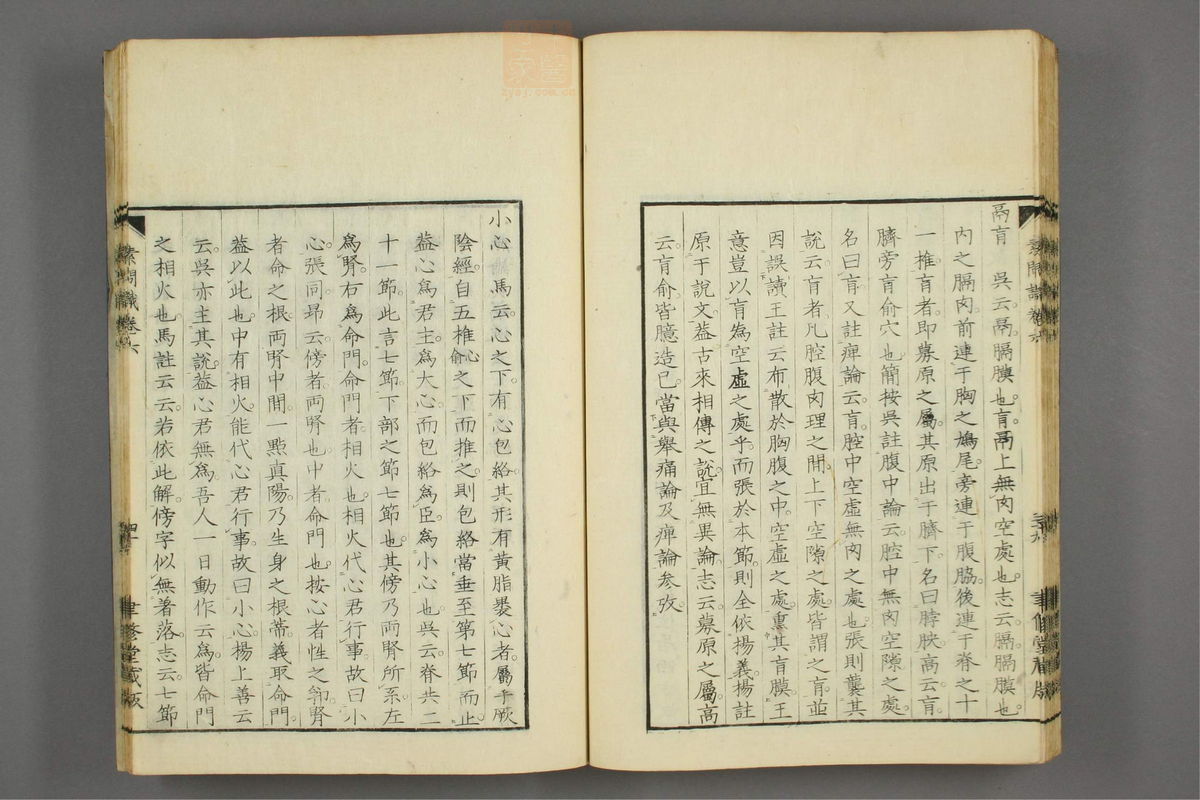 鬲肓　吳云鬲膈膜也肓鬲上無肉空處也志云膈膈膜也
內之膈肉前連于胸之鳩尾旁連于腹脇後連于脊之十
一椎肓者即募原之屬其原出于臍下名曰脖胦高云肓
臍旁肓俞穴也簡按吳註腹中論云腔中無肉空隙之處
名曰肓又註痺論云肓腔中空虛無肉之處也張則襲其
說云肓者凡腔腹肉理之間上下空隙之處皆謂之肓並
因誤讀王註云布散於胸腹之中空虛之處熏其肓膜王
意豈以肓為空虛之處乎而張於本節則全依楊義楊註
原于說文葢古來相傳之說宜無異論志云募原之屬高
云肓俞皆臆造已當與舉痛論及痺論參攷
素問識卷六
聿修堂藏版
小心　馬云心之下有心包絡其形有黃脂裹心者屬手厥
陰經自五椎心俞之下而推之則包絡當垂至第七節而止
葢心爲君主爲大心而包絡爲臣爲小心也吳云脊共二
十一節此言七節下部之節七節也其傍乃兩腎所系左
爲腎右爲命門命門者相火也相火代心君行事故曰小
心張同昂云傍者兩腎也中者命門也按心者性之郛腎
者命之根兩腎中間一點真陽乃生身之根蒂義取命門
葢以此也中有相火能代心君行事故曰小心楊上善云
云吳亦主其說葢心君無爲吾人一日動作云爲皆命門
之相火也馬註云云若依此解傍字似無著落志云七節
素問識卷六
聿修堂藏版